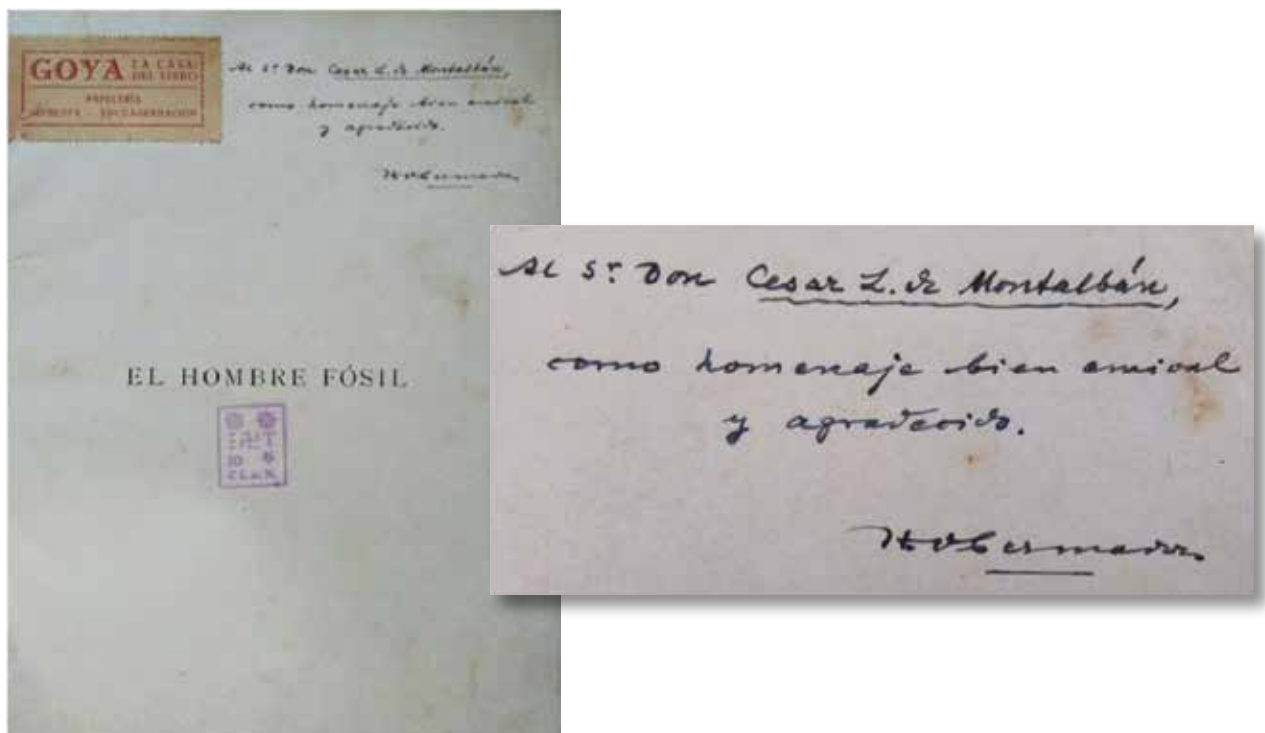 GOYA LA CASA
DEL LIBRO
PAPELERÍA
IMPRENTA - ENCUADERNACIÓN
Al Sr. Don Cesar L. de Montalbán,
como homenaje bien amical
y agradecido.
HObermaier
EL HOMBRE FÓSIL
Al Sr. Don Cesar L. de Montalbán,
como homenaje bien amical
y agradecido.
HObermaier